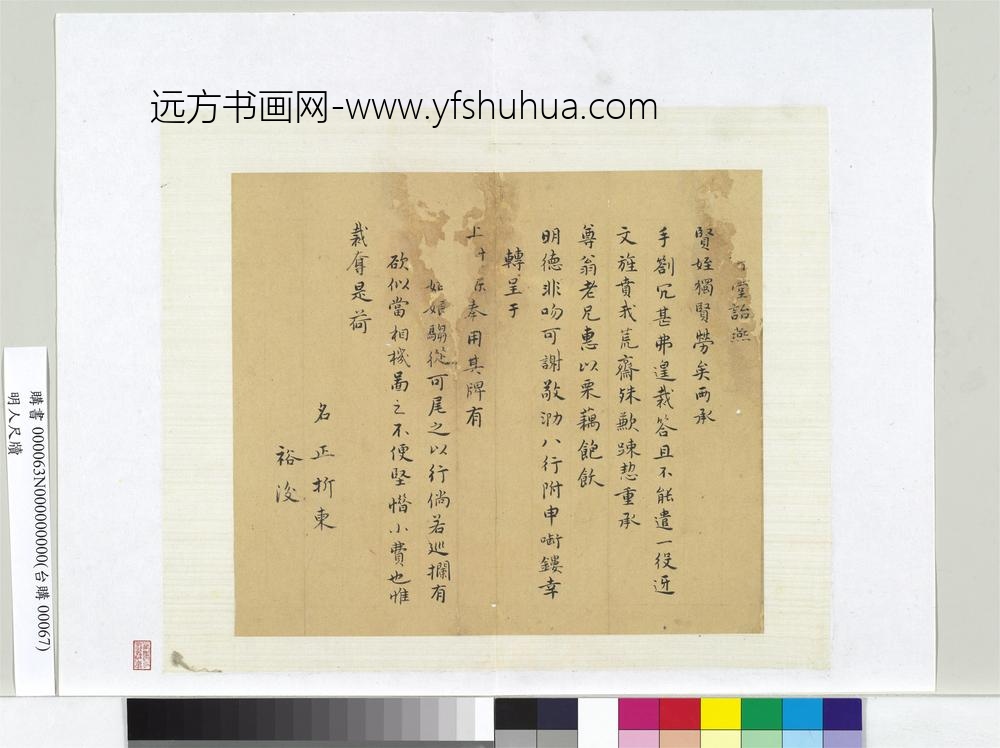 远方书画网-www.yfshuhua.com
堂詒燕
賢姪獨賢勞矣兩承
手劄冗甚弗遑裁答且不能遣一役迓
文旌賁我荒齋殊歉踈愆重承
尊翁老兄惠以栗藕飽飫
明德非吻可謝敬泐八行附申嘶鏤幸
轉呈于
上奉用其牌有
如娘騶從可尾之以行倘若巡攔有
欲似當相機啚之不便堅惜小費也惟
裁奪是荷
名正折柬
裕後
購書 000063N000000000(台購 00067)
明人尺牘